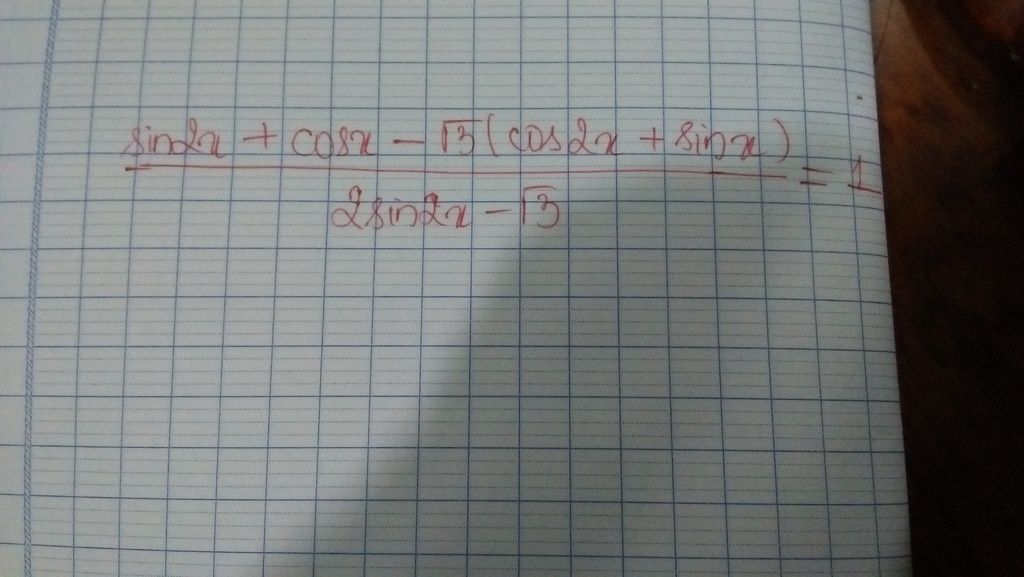 sin2x + cosx - √3(cos2x + sinx)
= 1
2sin2x - √3